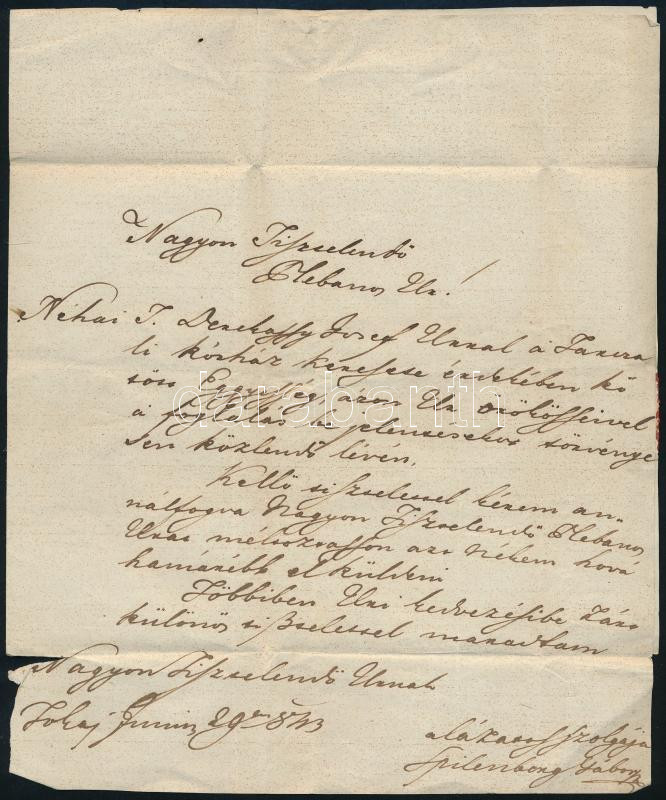 Nagyon Tisztelendő
Plebanos Ur!
Néhai T. Ur Urnal a
li kórház érdekében kö
tött Egyességi az Ur örökösseivel
a törvénye
sen közlendő lévén,
Kellő tisztelettel kérem an„
nálfogva Nagyon Tisztelendő Plebanos
Urat méltoztasson azt nekem hová
hamarébb elküldeni
Többiben Uri kedvezésibe zárt
különös tisztelettel maradtam
Nagyon Tisztelendő Urnak
Tokaj Junius 29én 843
alázatos szolgája
Spilenberg Gábor
darabanth